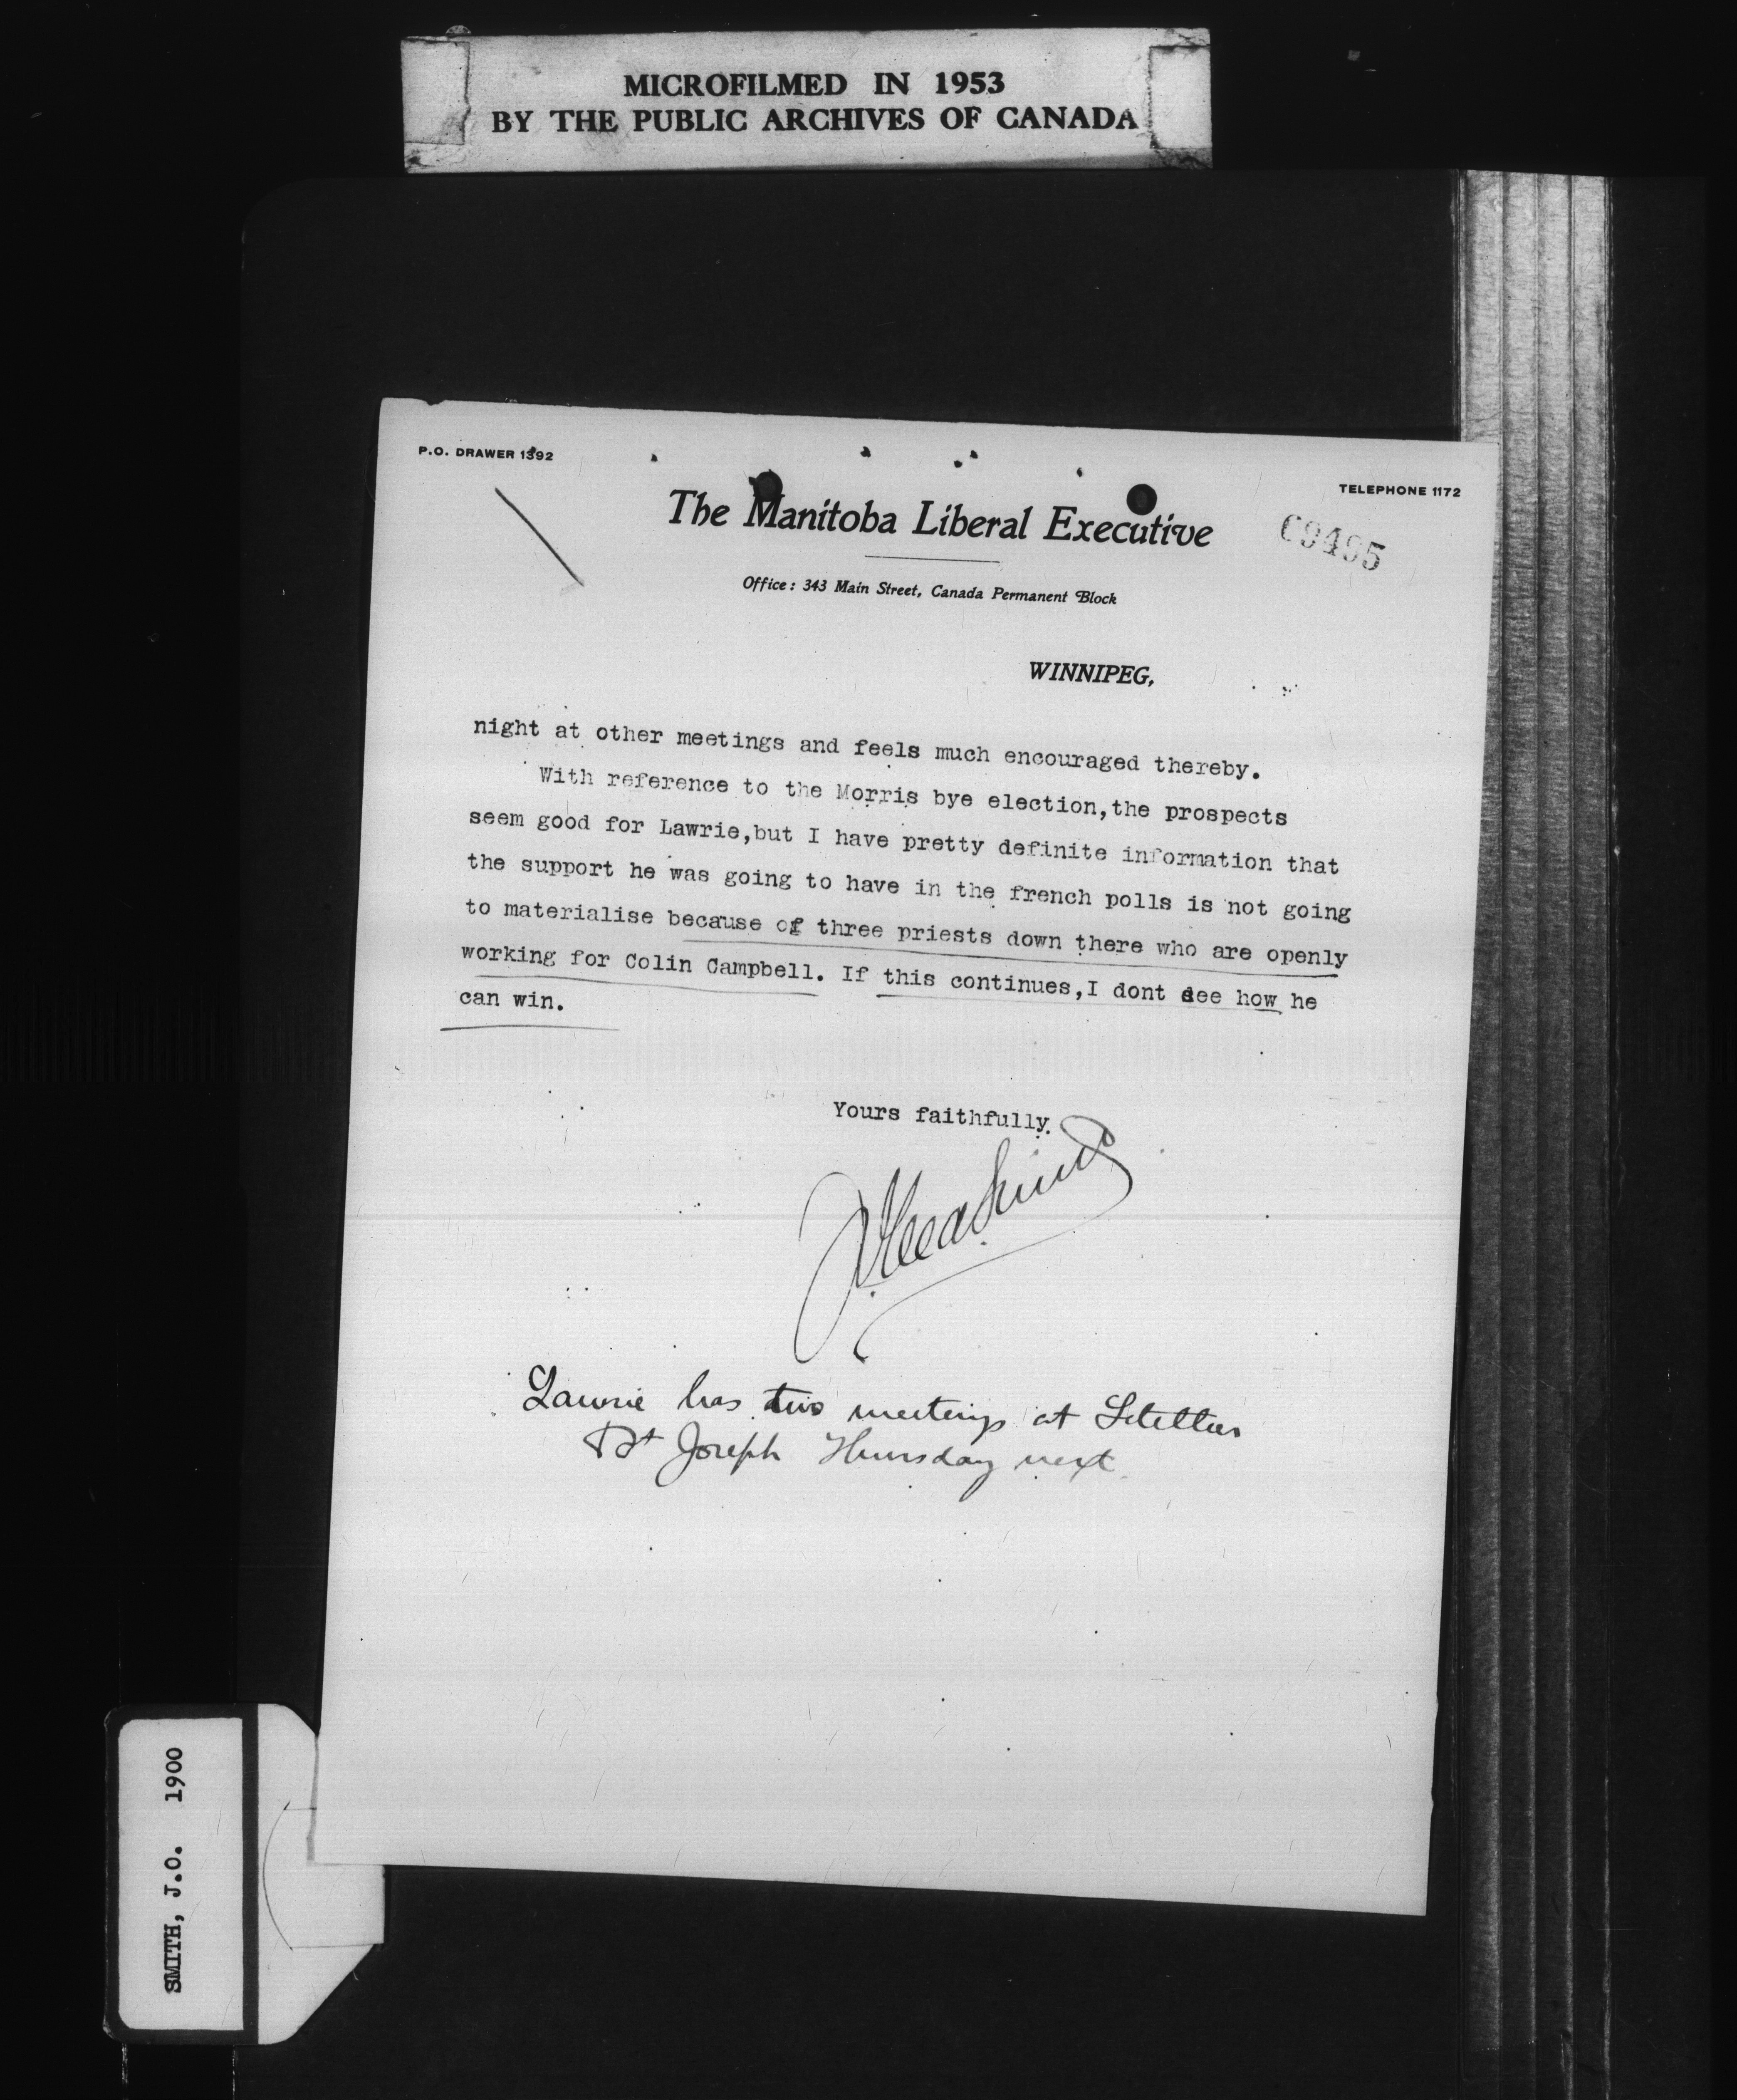 MICROFILMED IN 1953
BY THE PUBLIC ARCHIVES OF CANADA
P.O. DRAWER 1392
TELEPHONE 1172
The Manitoba Liberal Executive
Office: 343 Main Street, Canada Permanent Block
WINNIPEG,
night at other meetings and feels much encouraged thereby.
With reference to the Morris bye election,the prospects
seem good for Lawrie,but I have pretty definite information that
the support he was going to have in the french polls is not going
to materialise because of three priests down there who are openly
working for Colin Campbell. If this continues,I dont see how he
can win.
Yours faithfully
Lawrie has two meetings at Letellier
St Joseph Thursday next
SMITH, J.O. 1900